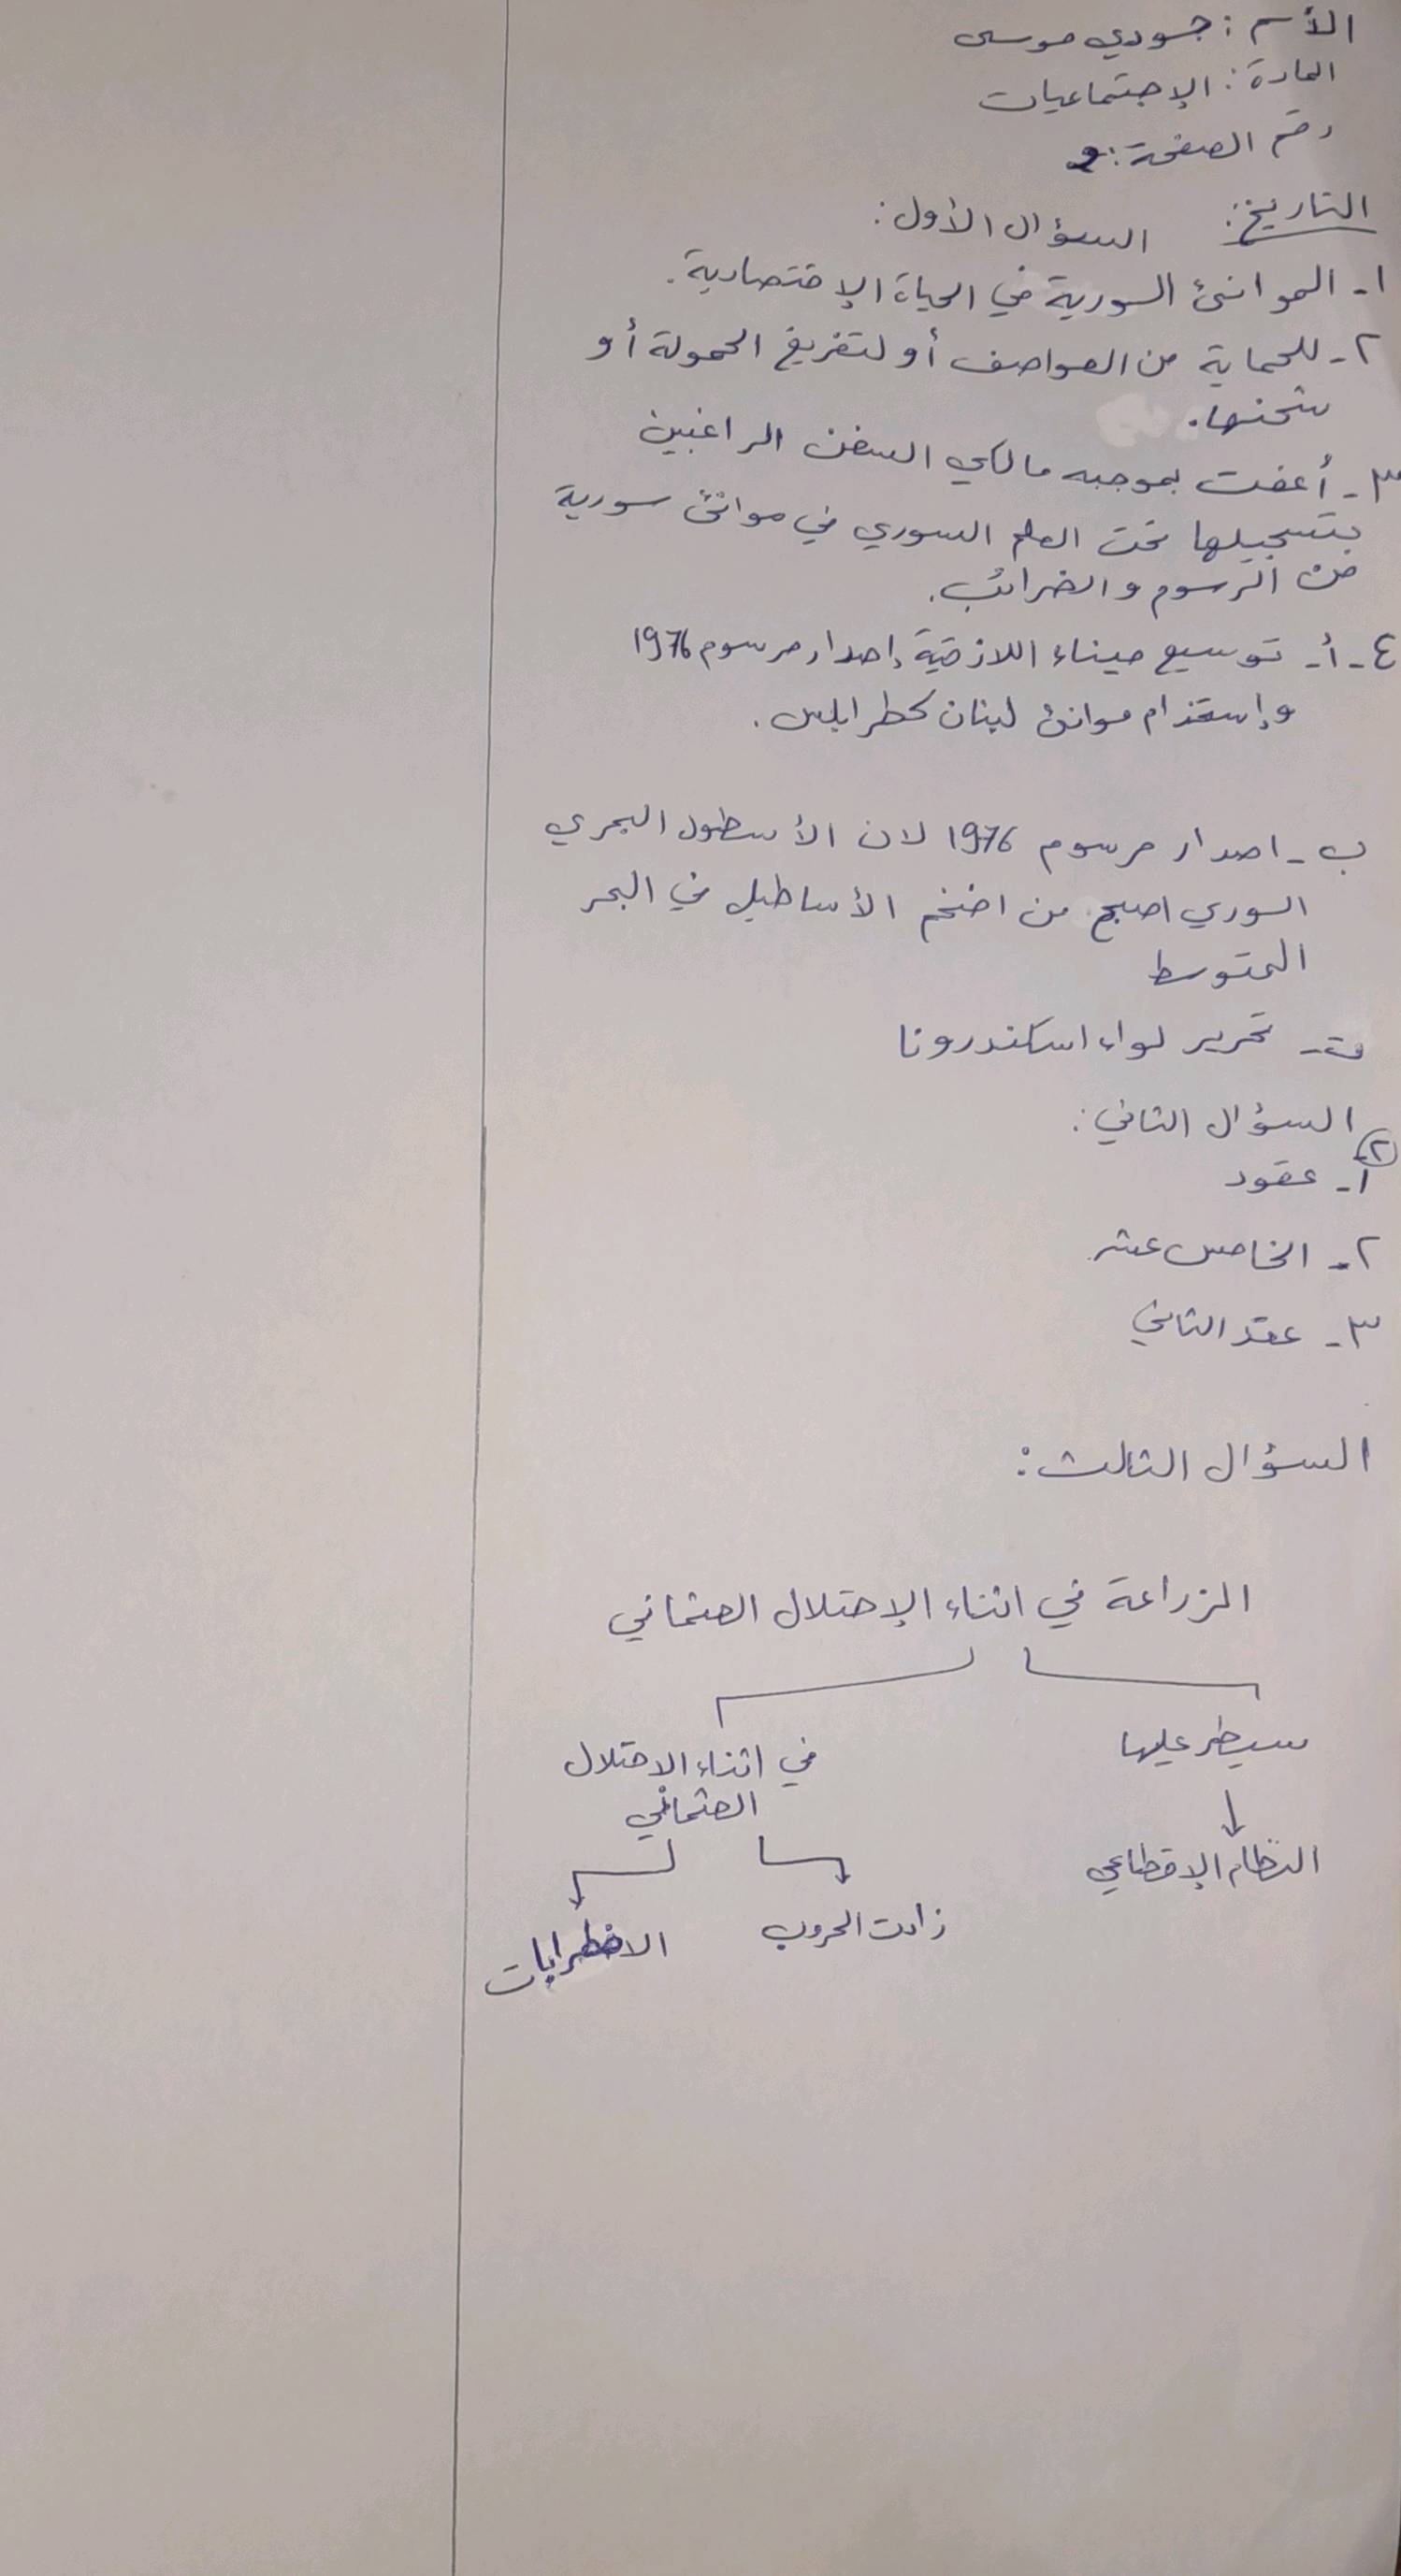 الأسم : جودي موسى
المادة : الإجتماعيات
رقم الصفحة : 2
التاريخ : السؤال الأول :
١- الموانئ السورية في الحياة الإقتصادية .
٢- للحماية من العواصف أو لتفريغ الحمولة أو
شحنها .
٣- أعفت بموجبه مالكي السفن الراغبين
بتسجيلها تحت العلم السوري في موانئ سورية
من الرسوم والضرائب .
٤- أ- توسيع ميناء اللاذقية إصدار مرسوم 1976
وإستخدام موانئ لبنان كطرابلس .
ب- اصدار مرسوم 1976 لان الأسطول البحري
السوري اصبح من اضخم الأساطيل في البحر
المتوسط
ت- تحرير لواء اسكندرونا
السؤال الثاني :
٢
أ- عقود
٢- الخامس عشر
٣- عقد الثاني
السؤال الثالث :
الزراعة في اثناء الإحتلال العثماني
سيطر عليها
في اثناء الاحتلال
العثماني
النظام الإقطاعي
زادت الحروب
الاضطرابات